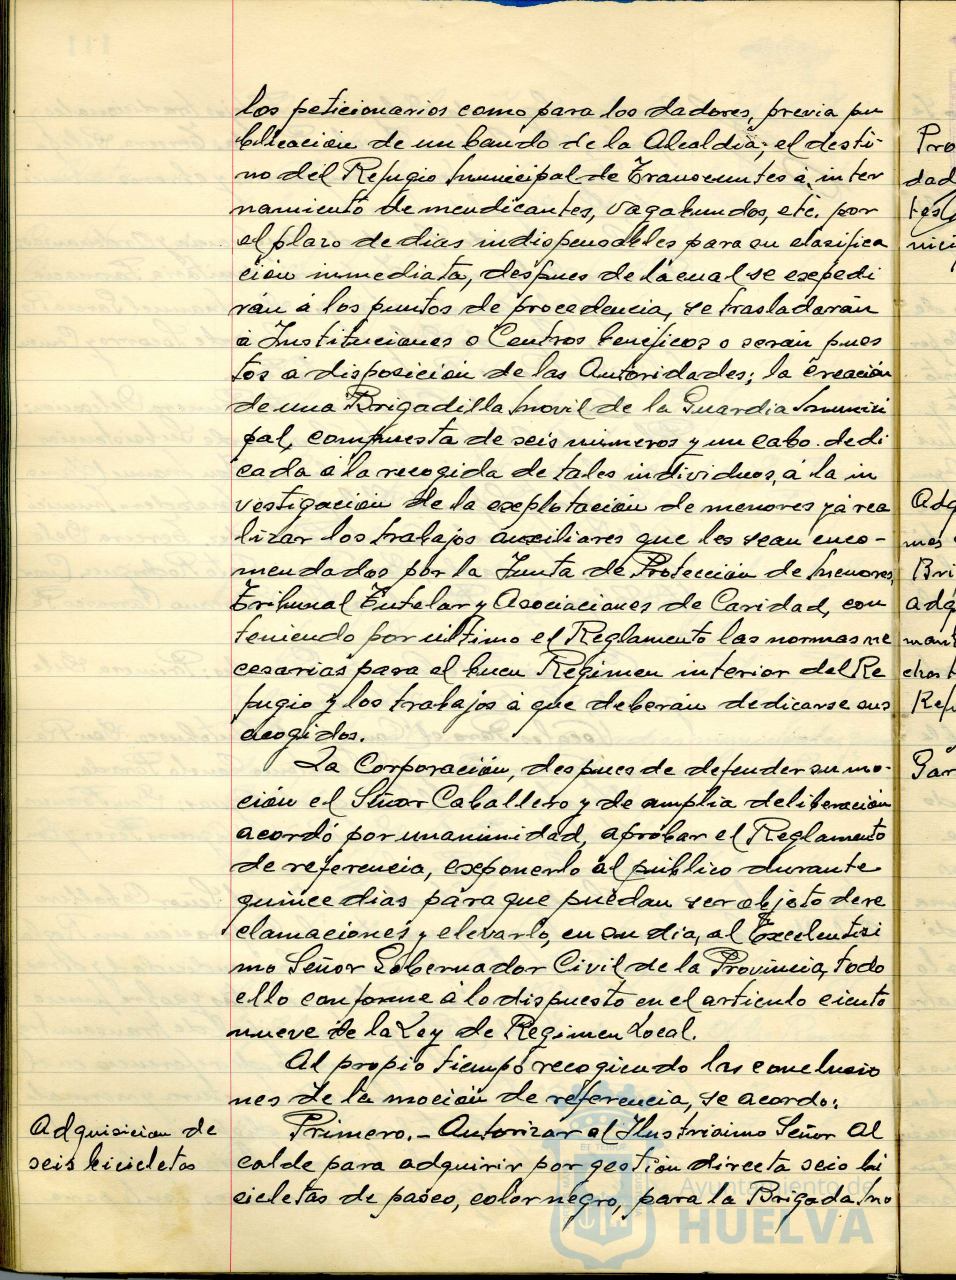 los peticionarios como para los dadores, previa pu
blicación de un bando de la Alcaldía; el desti-
no del Refugio Municipal de Transeuntes á inter
namiento de mendicantes, vagabundos, etc. por
el plazo de dias indispensables para su clasifica
ción inmediata, despues de la cual se expedi
rán á los puntos de procedencia, se trasladarán
a Instituciones o Centros beneficos o serán pues
tos a disposición de las Autoridades; la creación
de una Brigadilla movil de la Guardia Munici
pal, compuesta de seis números y un cabo dedi
cada á la recogida de tales individuos, á la in
vestigación de la explotación de menores y á rea
lizar los trabajos auxiliares que les sean enco-
mendados por la Junta de Protección de Menores,
Tribunal Tutelar y Asociaciones de Caridad, con
teniendo por último el Reglamento las normas ne
cesarias para el buen Regimen interior del Re
fugio y los trabajos á que deberán dedicarse sus
acogidos.
La Corporación, despues de defender su mo-
ción el Señor Caballero y de amplia deliberación
acordó por unanimidad, aprobar el Reglamento
de referencia, exponerlo al público durante
quince dias para que puedan ser objeto de re
clamaciones y elevarlo, en su dia, al Excelentisi
mo Señor Gobernador Civil de la Provincia, todo
ello conforme á lo dispuesto en el articulo ciento
nueve de la Ley de Regimen Local.
Al propio tiempo recogiendo las conclusio
nes de la moción de referencia, se acordo:
Adquisicion de
seis bicicletas
Primero.- Autorizar al Ilustrisimo Señor Al
calde para adquirir por gestión directa seis bi
cicletas de paseo, color negro, para la Brigada Mo
Pro
dad
tes
nici
Adq
mos
Bri
adq
man
chos
Ref
Gar
Ayuntamiento de
HUELVA